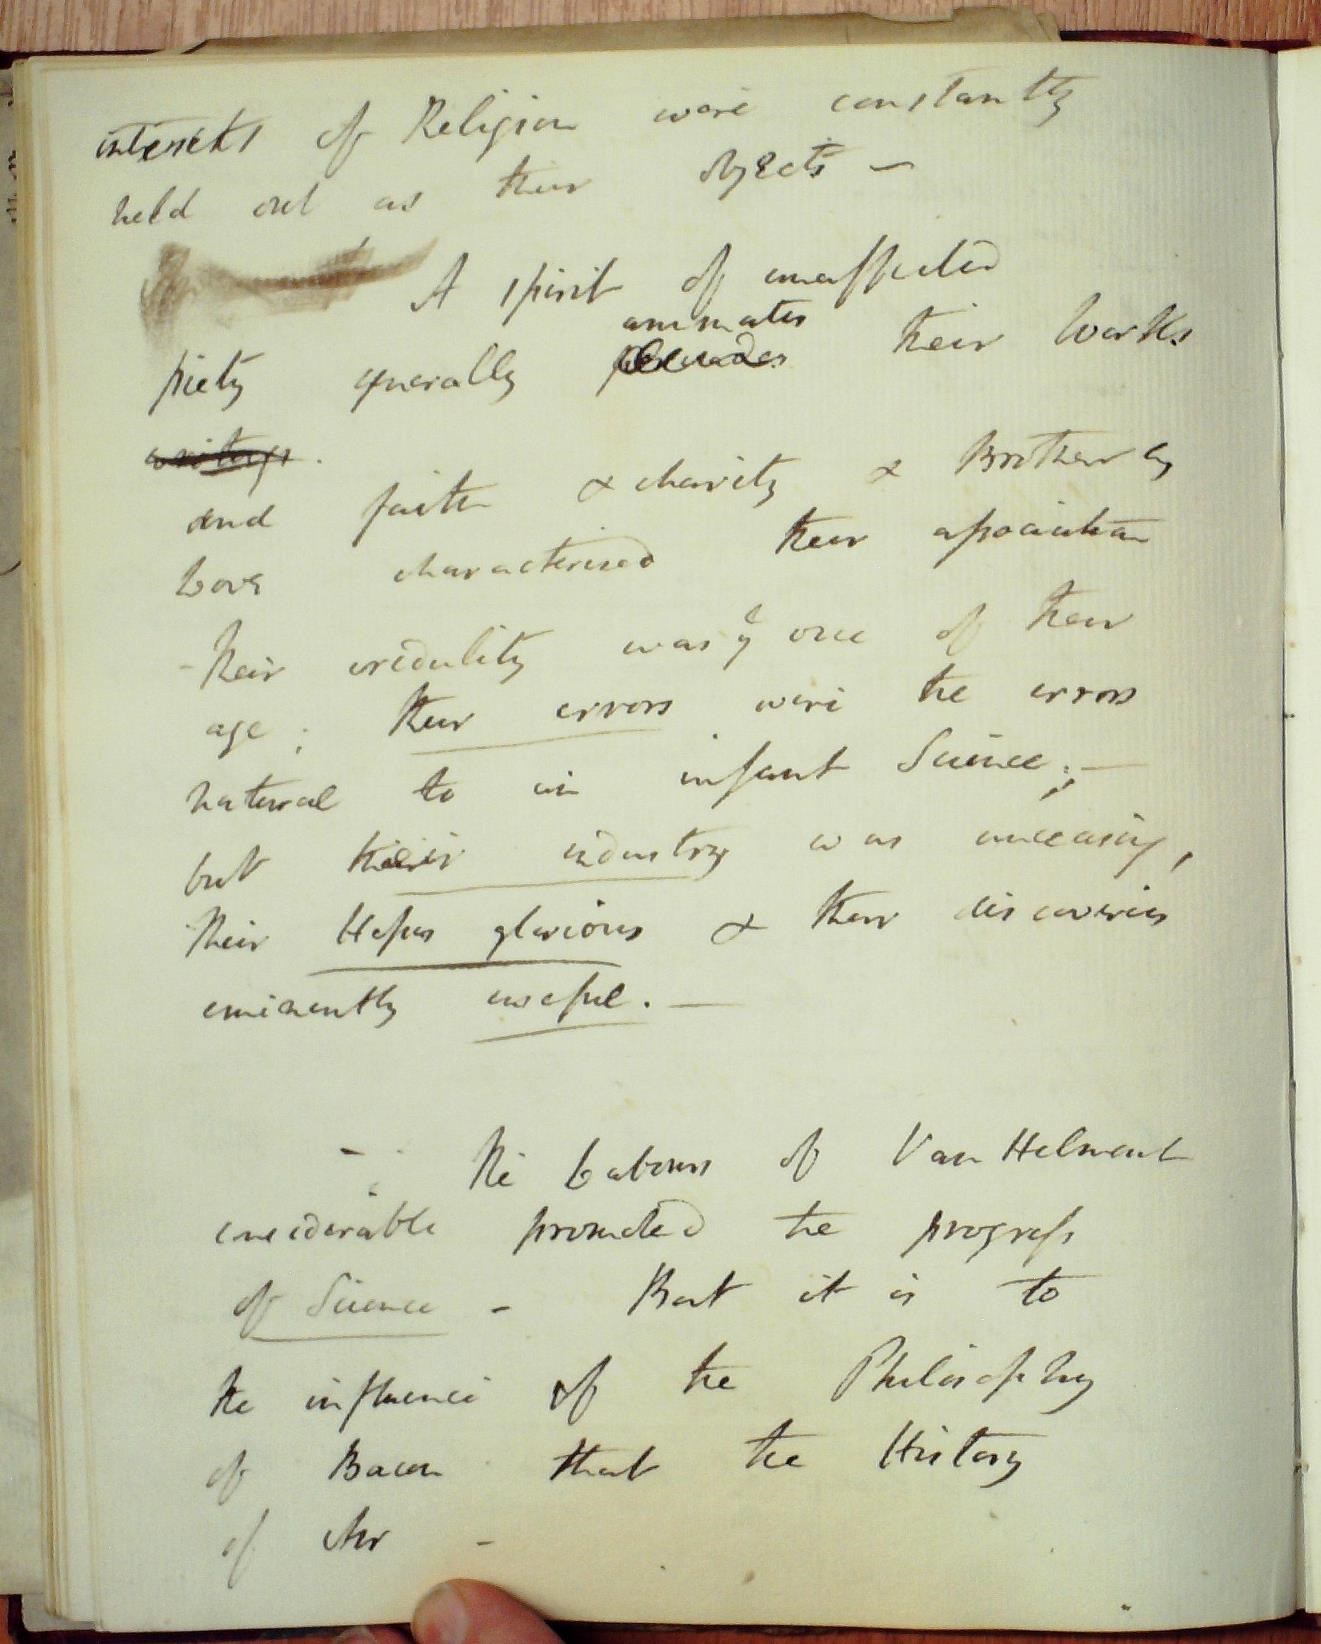 interests of Religion were constantly
held out as their objects –
A spirit of unaffected
animates
piety generally pervades their works
writings.
and faith & charity & Brotherly
Love characterised their association
– Their credulity was ye one of their
age; their errors were the errors
natural to an infant Science; –
but their industry was unceasing,
Their Hopes glorious & their discoveries
eminently useful. –
– The Labours of Van Helmont
considerable promoted the progress
of Science – But it is to
the influence of the Philosophy
of Bacon that the History
of Air –